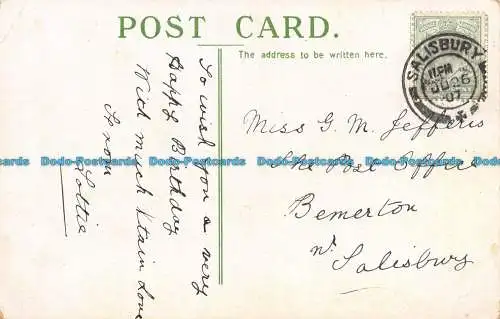 POST CARD.
The address to be written here.
SALISBURY
11 PM
JU 26
07
To wish you a very
Happy Birthday
With much Love
From
Lottie
Miss G. M. Jefferis
The Post Office
Bemerton
nr
Salisbury
Dodo-Postcards Dodo-Postcards Dodo-Postcards Dodo-Postcards Dodo-Postcards